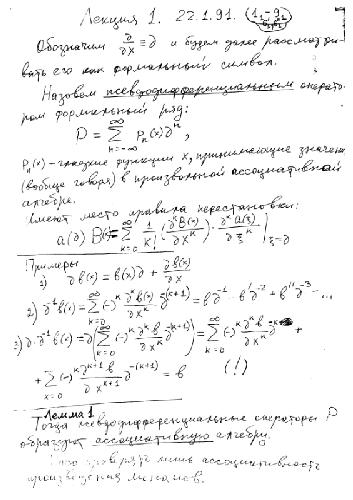 Лекция 1. 22.1.91. (1₁-9₁)
Обозначим ∂/∂x ≡ ∂ и будем далее рассматри-
вать его как формальный символ.
Назовем псевдодифференциальным операто-
ром формальный ряд:
D = ∑_{n=-∞}^{∞} Pₙ(x)∂ⁿ,
Pₙ(x) - гладкие функции x, принимающие значения
(вообще говоря) в произвольной ассоциативной
алгебре.
Имеют место правила перестановки:
a(∂) B(x) = ∑_{k=0}^{∞} 1/k! (∂ᵏB(x)/∂xᵏ) · ∂ᵏa(ξ)/∂ξᵏ |ξ=∂
Примеры
1) ∂b(x) = b(x)∂ + ∂b(x)/∂x
2) ∂⁻¹b(x) = ∑_{k=0}^{∞} (-)ᵏ ∂ᵏb(x)/∂xᵏ ∂^{-(k+1)} = b∂⁻¹ - b'∂⁻² + b''∂⁻³ - ...
3) ∂·∂⁻¹b(x) = ∂(∑_{k=0}^{∞} (-)ᵏ ∂ᵏb/∂xᵏ ∂^{-(k+1)}) = ∑_{k=0}^{∞} (-)ᵏ ∂ᵏb/∂xᵏ ∂^{-k} +
+ ∑_{k=0}^{∞} (-)ᵏ ∂^{k+1}b/∂x^{k+1} ∂^{-(k+1)} = b (!)
Лемма 1
Тогда псевдодифференциальные операторы D
образуют ассоциативную алгебру.
проверять лишь ассоциативность
произведения